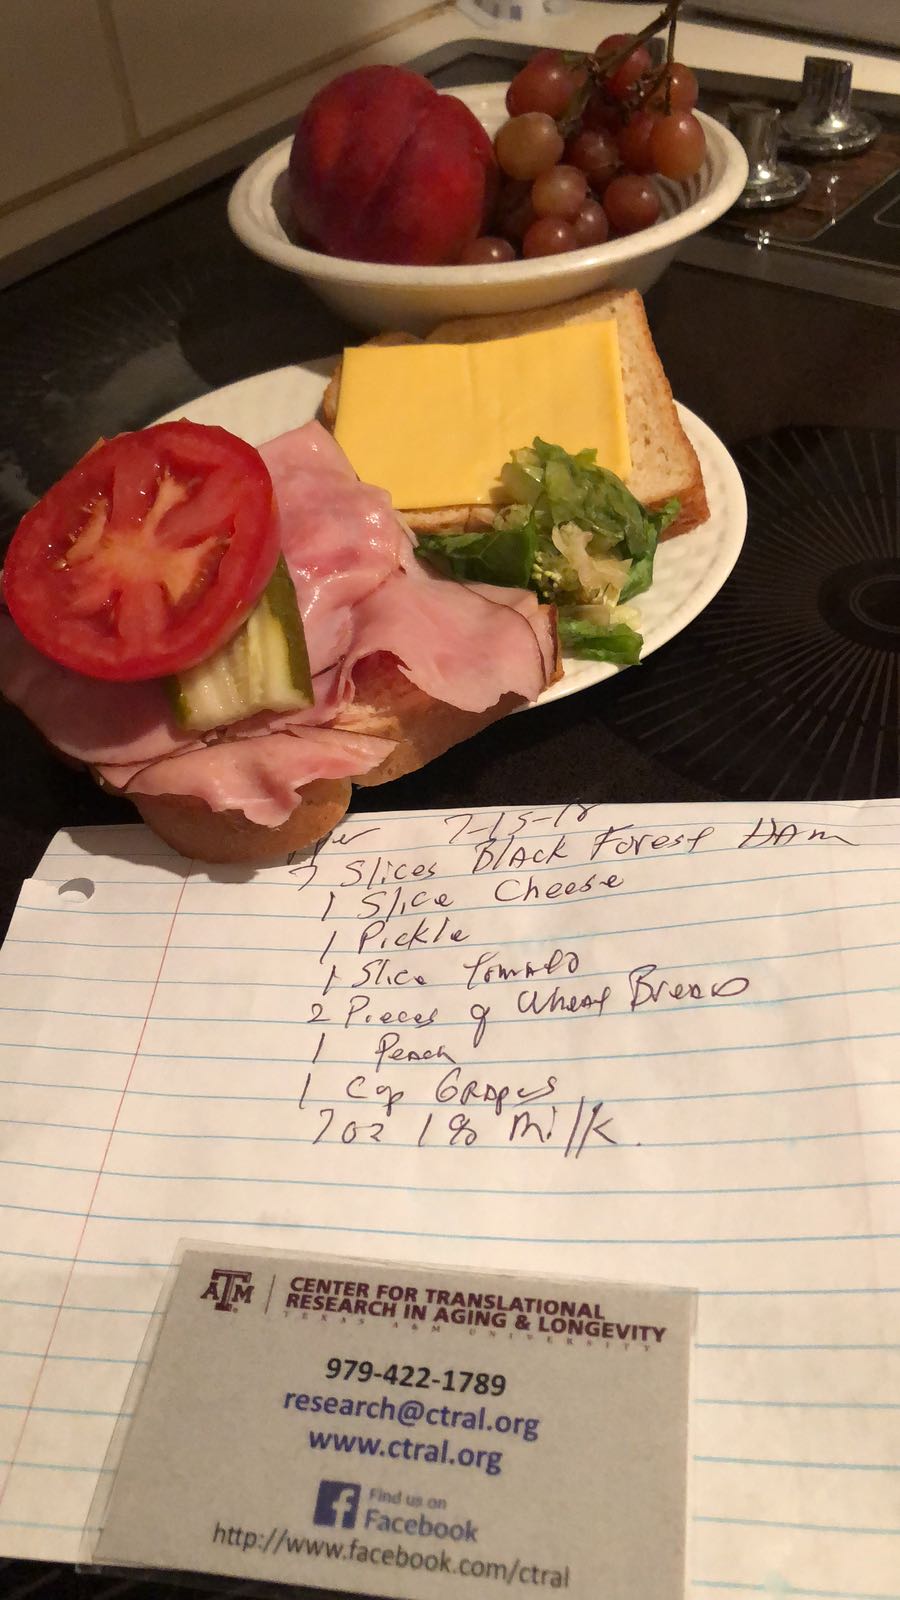 7-15-18
7 Slices Black Forest Ham
1 Slice Cheese
1 Pickle
1 Slice Tomato
2 Pieces of Wheat Bread
1 Peach
1 Cup Grapes
7oz 1% Milk.
ATM
CENTER FOR TRANSLATIONAL
RESEARCH IN AGING & LONGEVITY
TEXAS A&M UNIVERSITY
979-422-1789
research@ctral.org
www.ctral.org
f Find us on
Facebook
http://www.facebook.com/ctral